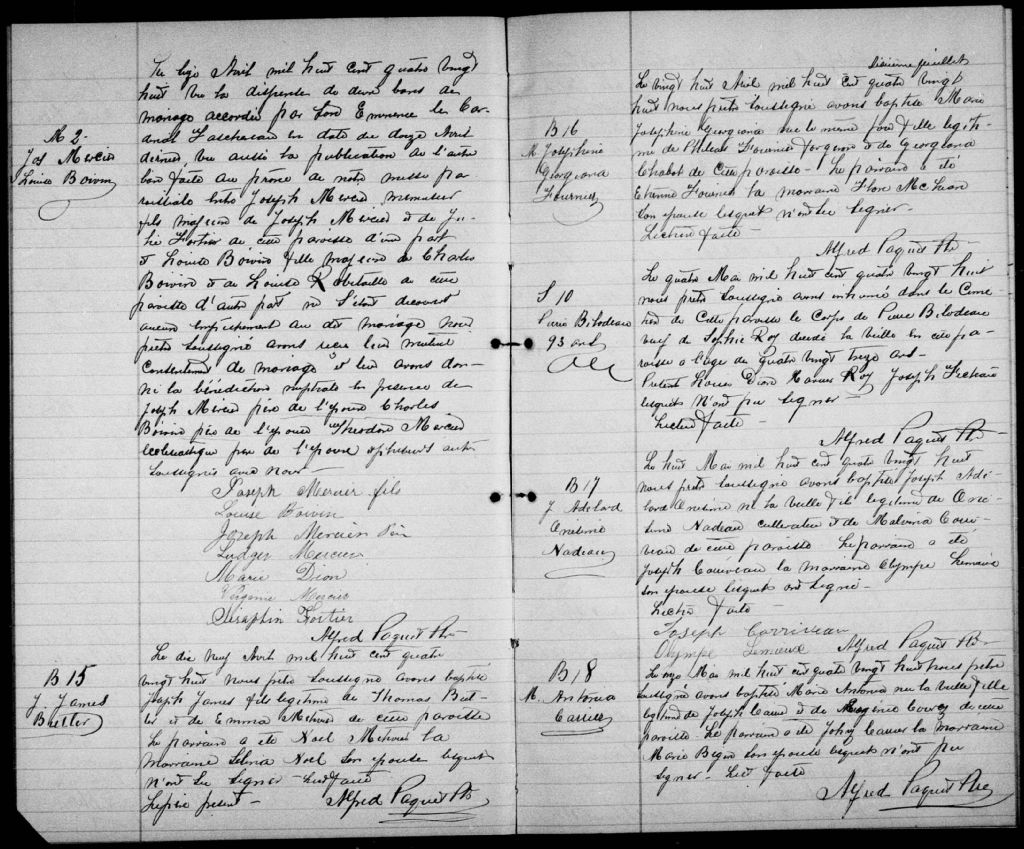 M 2
Jos Mercier
Louise Boivin
Le seize Avril mil huit cent quatre vingt
huit vu la dispense de deux bans de
mariage accordée par Son Eminence le Car
dinal Taschereau en date du douze Avril
dernier, vu aussi la publication de l'autre
ban faite au prône de notre messe pa
roissiale entre Joseph Mercier menuisier
fils majeur de Joseph Mercier et de Ju-
lie Fortier de cette paroisse d'une part
et Louise Boivin fille majeure de Charles
Boivin et de Louise Robitaille de cette
paroisse d'autre part ne s'étant découvert
aucun empêchement au dit mariage nous
prêtre soussigné avons reçu leur mutuel
consentement de mariage et leur avons don-
né la bénédiction nuptiale en présence de
Joseph Mercier père de l'époux Charles
Boivin père de l'épouse Théodore Mercier
ecclésiastique frère de l'époux et plusieurs autres
soussignés avec nous
Joseph Mercier fils
Louise Boivin
Joseph Mercier Père
Ludger Mercier
Marie Dion
Virginie Mercier
Séraphin Fortier
Alfred Paquet Ptre
B 15
J. James
Butler
Le dix neuf Avril mil huit cent quatre
vingt huit nous prêtre soussigné avons baptisé
Joseph James fils légitime de Thomas But-
ler et de Emma Méthivier de cette paroisse
Le parrain a été Noel Méthivier la
marraine Noel son épouse lesquels
n'ont su signer lecture faite
Le père présent -
Alfred Paquet Ptre
B 16
M Josephine
Georgiana
Fournier
dixième feuillet
Le vingt huit Avril mil huit cent quatre vingt
huit nous prêtre soussigné avons baptisé Marie
Josephine Georgiana née le même jour fille légiti-
me de Philéas Fournier forgeron et de Georgiana
Chabot de cette paroisse - Le parrain a été
Etienne Fournier la marraine Flore McLean
son épouse lesquels n'ont su signer -
Lecture faite -
Alfred Paquet Ptre -
S 10
Pierre Bilodeau
93 ans
Le quatre Mai mil huit cent quatre vingt huit
nous prêtre soussigné avons inhumé dans le Cime-
tière de cette paroisse le corps de Pierre Bilodeau
veuf de Sophie Roy décédé la veille en cette pa-
roisse à l'âge de quatre vingt treize ans -
Présent Louis Dion Roy Joseph
lesquels n'ont pu signer -
Lecture faite -
Alfred Paquet Ptre -
B 17
J Adélard
Onésime
Nadeau
Le huit Mai mil huit cent quatre vingt huit
nous prêtre soussigné avons baptisé Joseph Adé-
lard Onésime né la veille fils légitime de Oné-
sime Nadeau cultivateur et de Malvina Corri-
veau de cette paroisse Le parrain a été
Joseph Corriveau la marraine Olympe Lemieux
son épouse lesquels ont signé -
Lecture faite -
Joseph Corriveau
Olympe Lemieux Alfred Paquet Ptre
B 18
M. Antonia
Carrier
Le onze Mai mil huit cent quatre vingt huit nous prêtre
soussigné avons baptisé Marie Antonia née la veille fille
légitime de Joseph Carrier et de de cette
paroisse - Le parrain a été Carrier la marraine
Marie Bégin son épouse lesquels n'ont pu
signer - Lect faite
Alfred Paquet Ptre